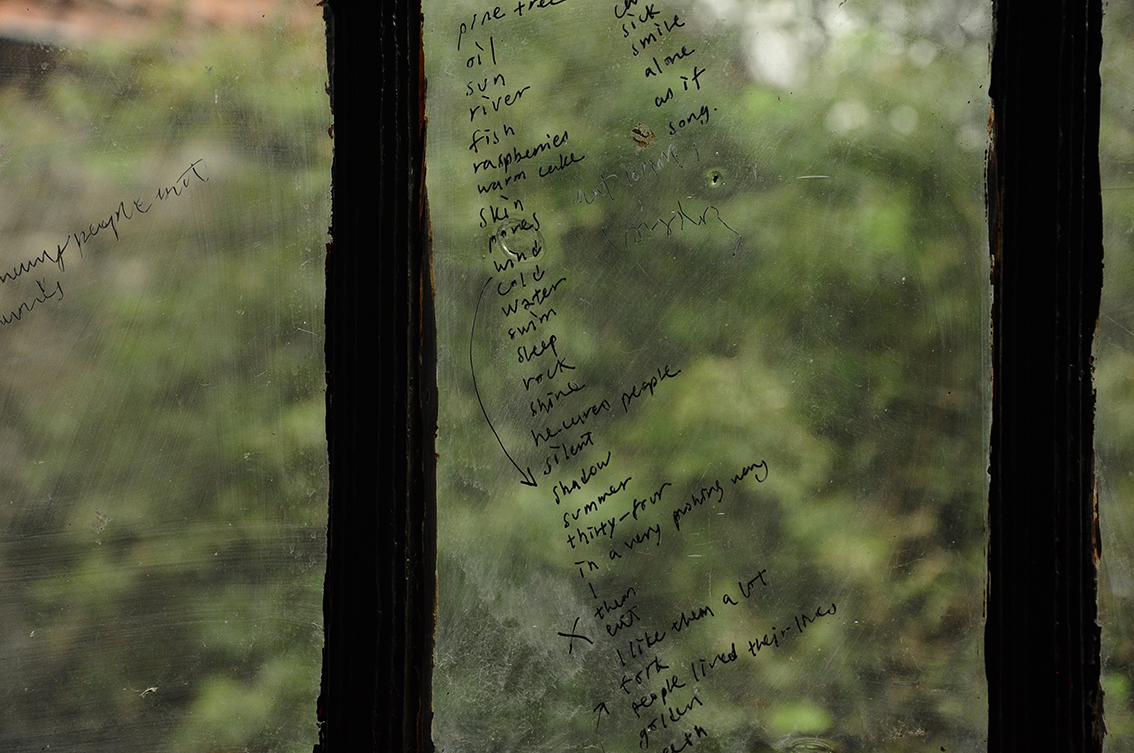 pine tree
oil
sun
river
fish
raspberries
warm cake
skin
pores
wind
cold
water
swim
sleep
rock
shine
he cures people
silent
shadow
summer
thirty-four
in a very pushing way
I
them
cut
I like them a lot
fork
people lived their lives
golden
sick
smile
alone
as if
song.
people